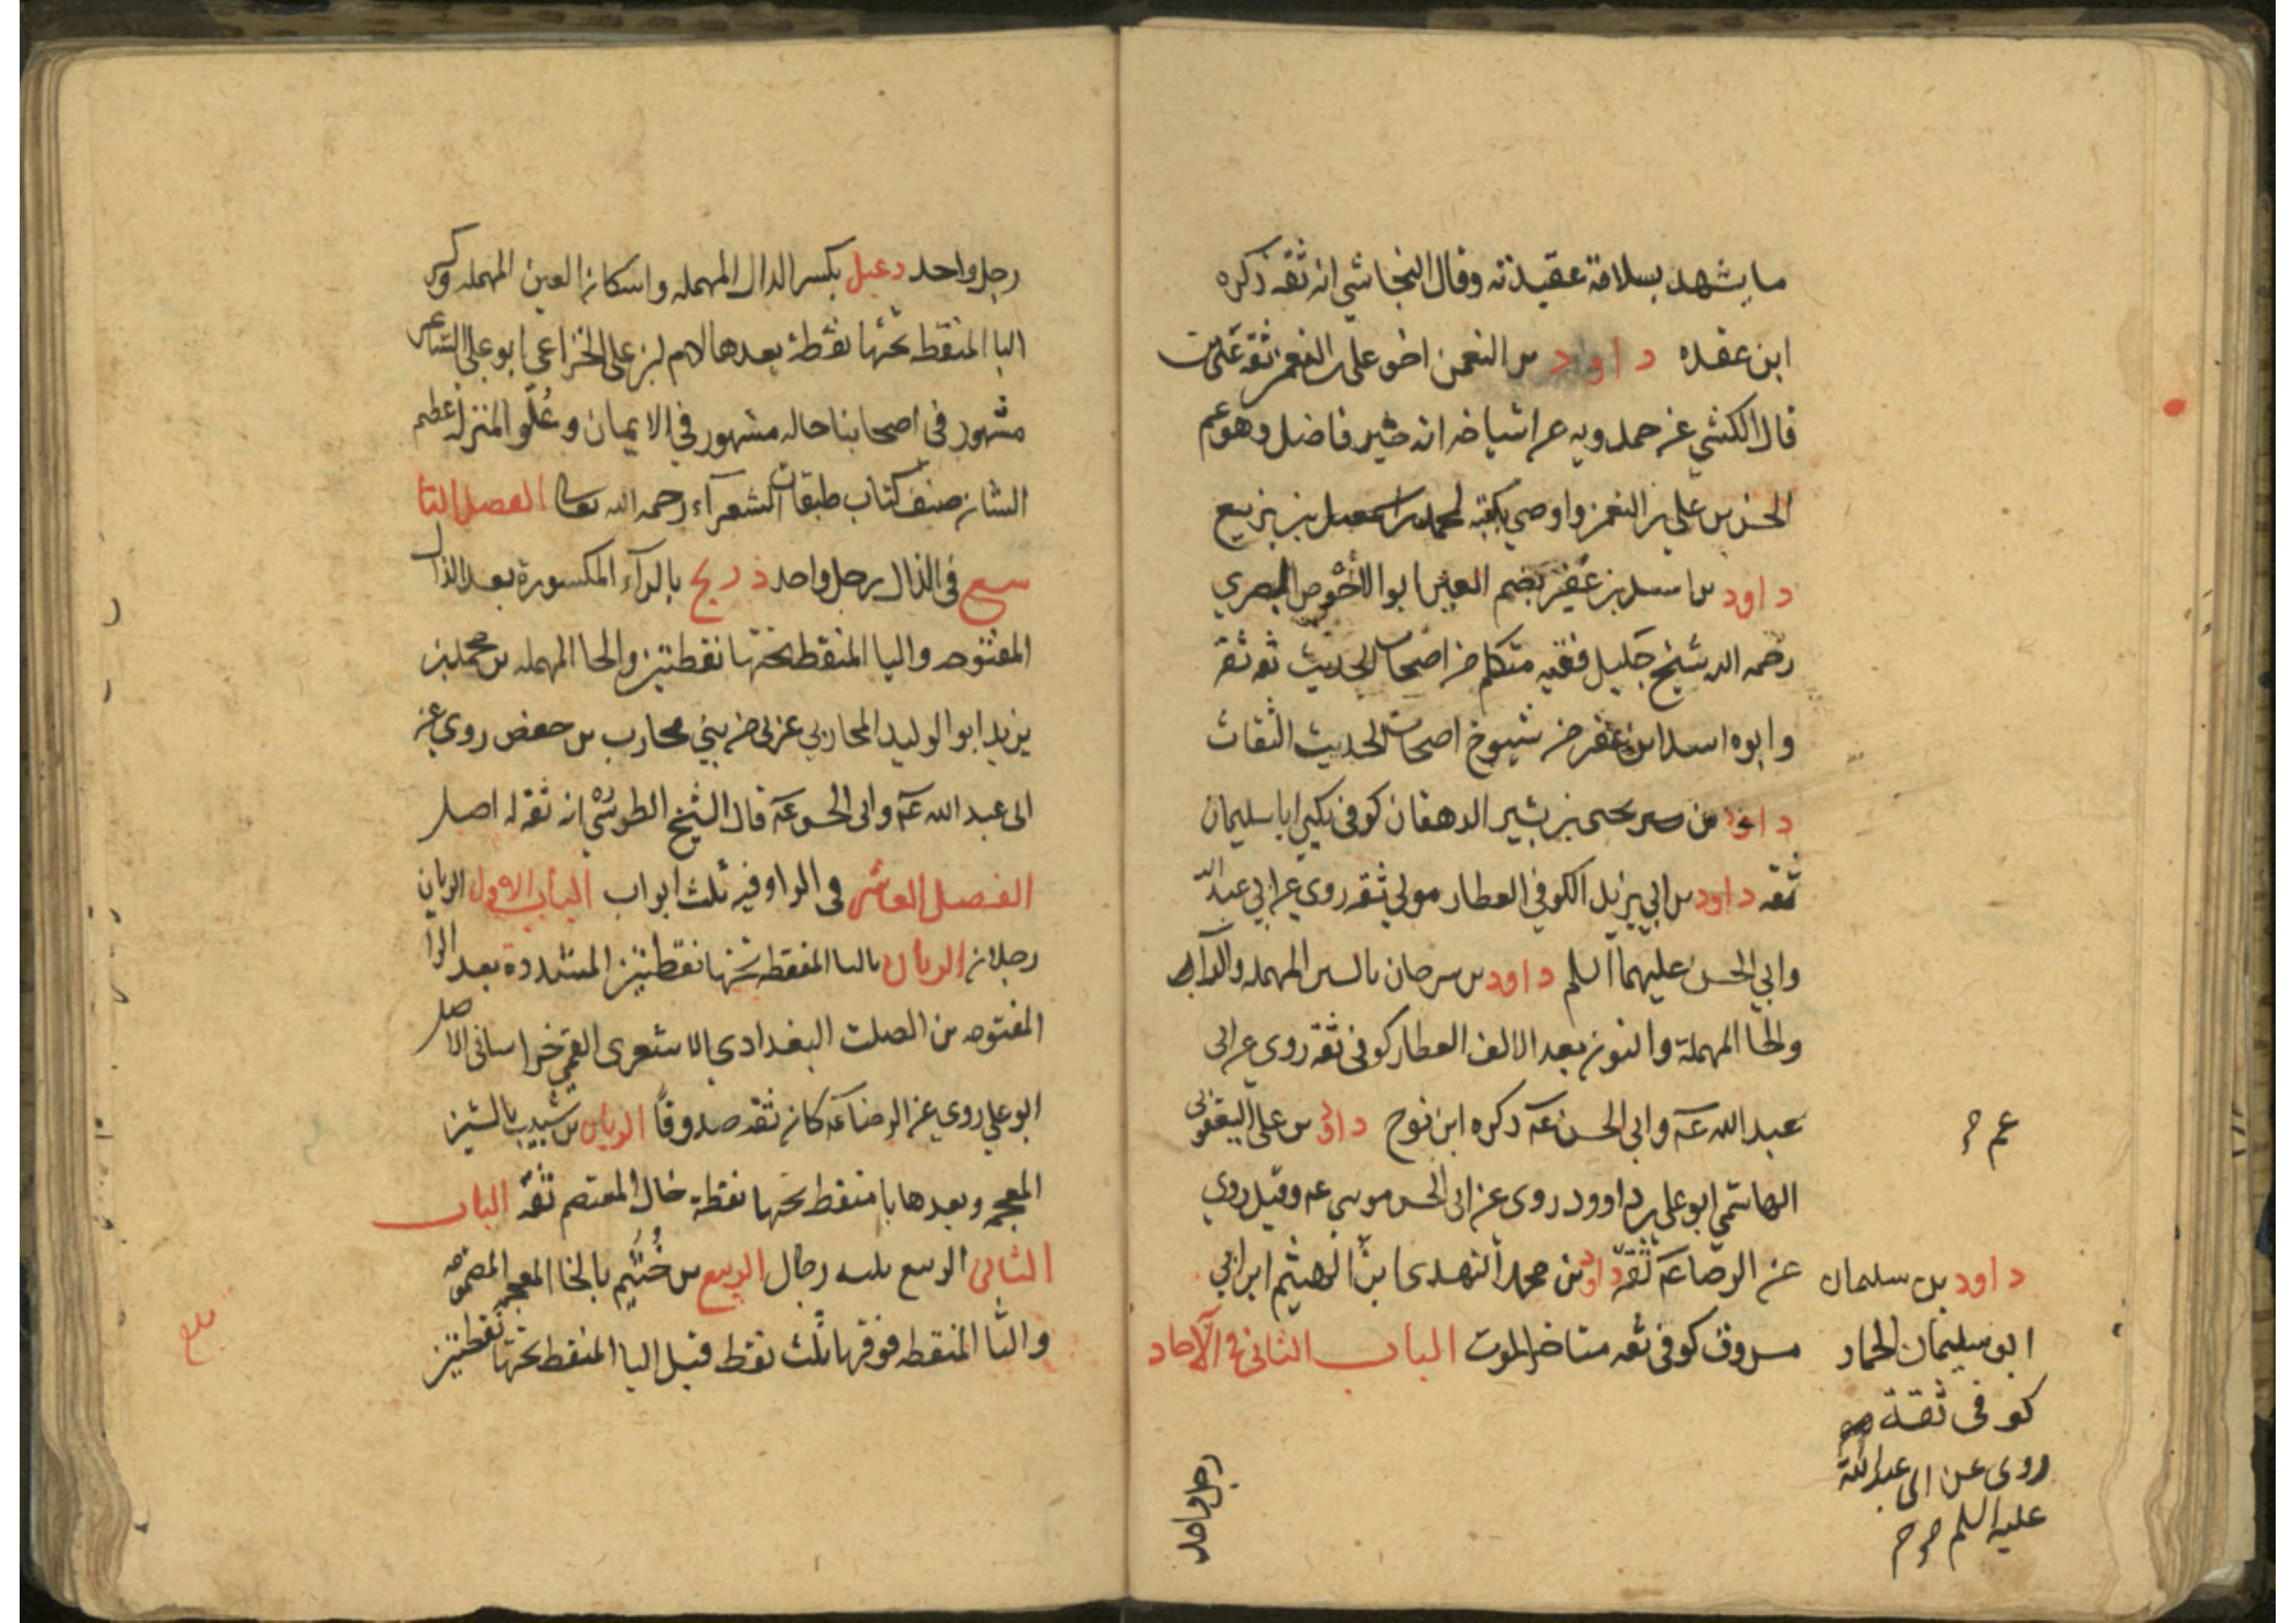 ما يشهد بسلامة عقيدته وقال النجاشي انه ثقه ذكره
ابن عقده داود بن النعمن اخو علي بن النعمن ثقه عين
قال الكشي عن حمدويه عن اشياخه انه خير فاضل وهو عم
الحسن بن علي بن النعمن واوصي بكتبه لمحمد بن اسمعيل بن بزيع
داود بن اسد بن عفير بضم العين ابو الاحوص البصري
رحمه الله شيخ جليل فقيه متكلم من اصحاب الحديث ثقه ثقه
وابوه اسد ابن عفير من شيوخ اصحاب الحديث الثقات
داود بن يحيى بن بشير الدهقان كوفي يكني ابا سليمان
ثقه داود بن ابي يزيد الكوفي العطار مولي ثقه روي عن ابي عبد الله
وابي الحسن عليهما السلم داود بن سرحان بالسين المهمله والرآء
والحا المهملة والنون بعد الالف العطار كوفي ثقه روي عن ابي
عبد الله عـه وابي الحسن عـه ذكره ابن نوح داود بن علي اليعقوبي
الهاشمي ابو علي بن داوود روي عن ابي الحسن موسي عـه وقيل روي
عن الرضا عـه ثقه داود بن محمد النهدي ابن الهيثم ابن ابي
مسروق كوفي ثقه متاخر الموت الباب الثاني في الآحاد
داود بن سليمان
ابو سليمان الحمار
كوفي ثقة
روى عن ابي عبد الله
عليه السلم
رجل واحد
رجل واحد دعبل بكسر الدال المهمله واسكان العين المهمله وكسر
البا المنقطه تحتها نقطة بعدها لام بن علي الخزاعي ابو علي الشاعر
مشهور في اصحابنا حاله مشهور في الايمان وعُلّو المنزله عظيم
الشان صنف كتاب طبقات الشعرآء رحمه الله تعالى الفصل التا
سع في الذال رجل واحد ذريح بالرآء المكسورة بعد الذال
المفتوحه واليا المنقطه تحتها نقطتين والحا المهمله بن محمد بن
يزيد ابو الوليد المحاربي عربي من بني محارب بن حفص روي عن
ابي عبد الله عـه وابي الحسن عـه قال الشيخ الطوسي انه ثقه له اصل
الفصل العاشر في الرا وفيه ثلث ابواب الباب الاول الريان
رجلان الريان باليا المنقطه تحتها نقطتين المشددة بعد الرا
المفتوحه بن الصلت البغدادي الاشعري القمي خراساني الاصل
ابو علي روي عن الرضا عـه كان ثقه صدوقًا الريان بن شبيب بالشين
المعجمه وبعدها با منقطه تحتها نقطة خال المعتصم ثقه الباب
الثاني الربيع ثلثه رجال الربيع بن خُثَيم بالخا المعجمه المضمومه
والثا المنقطه فوقها ثلث نقط قبل اليا المنقطه تحتها نقطتين
بلغ